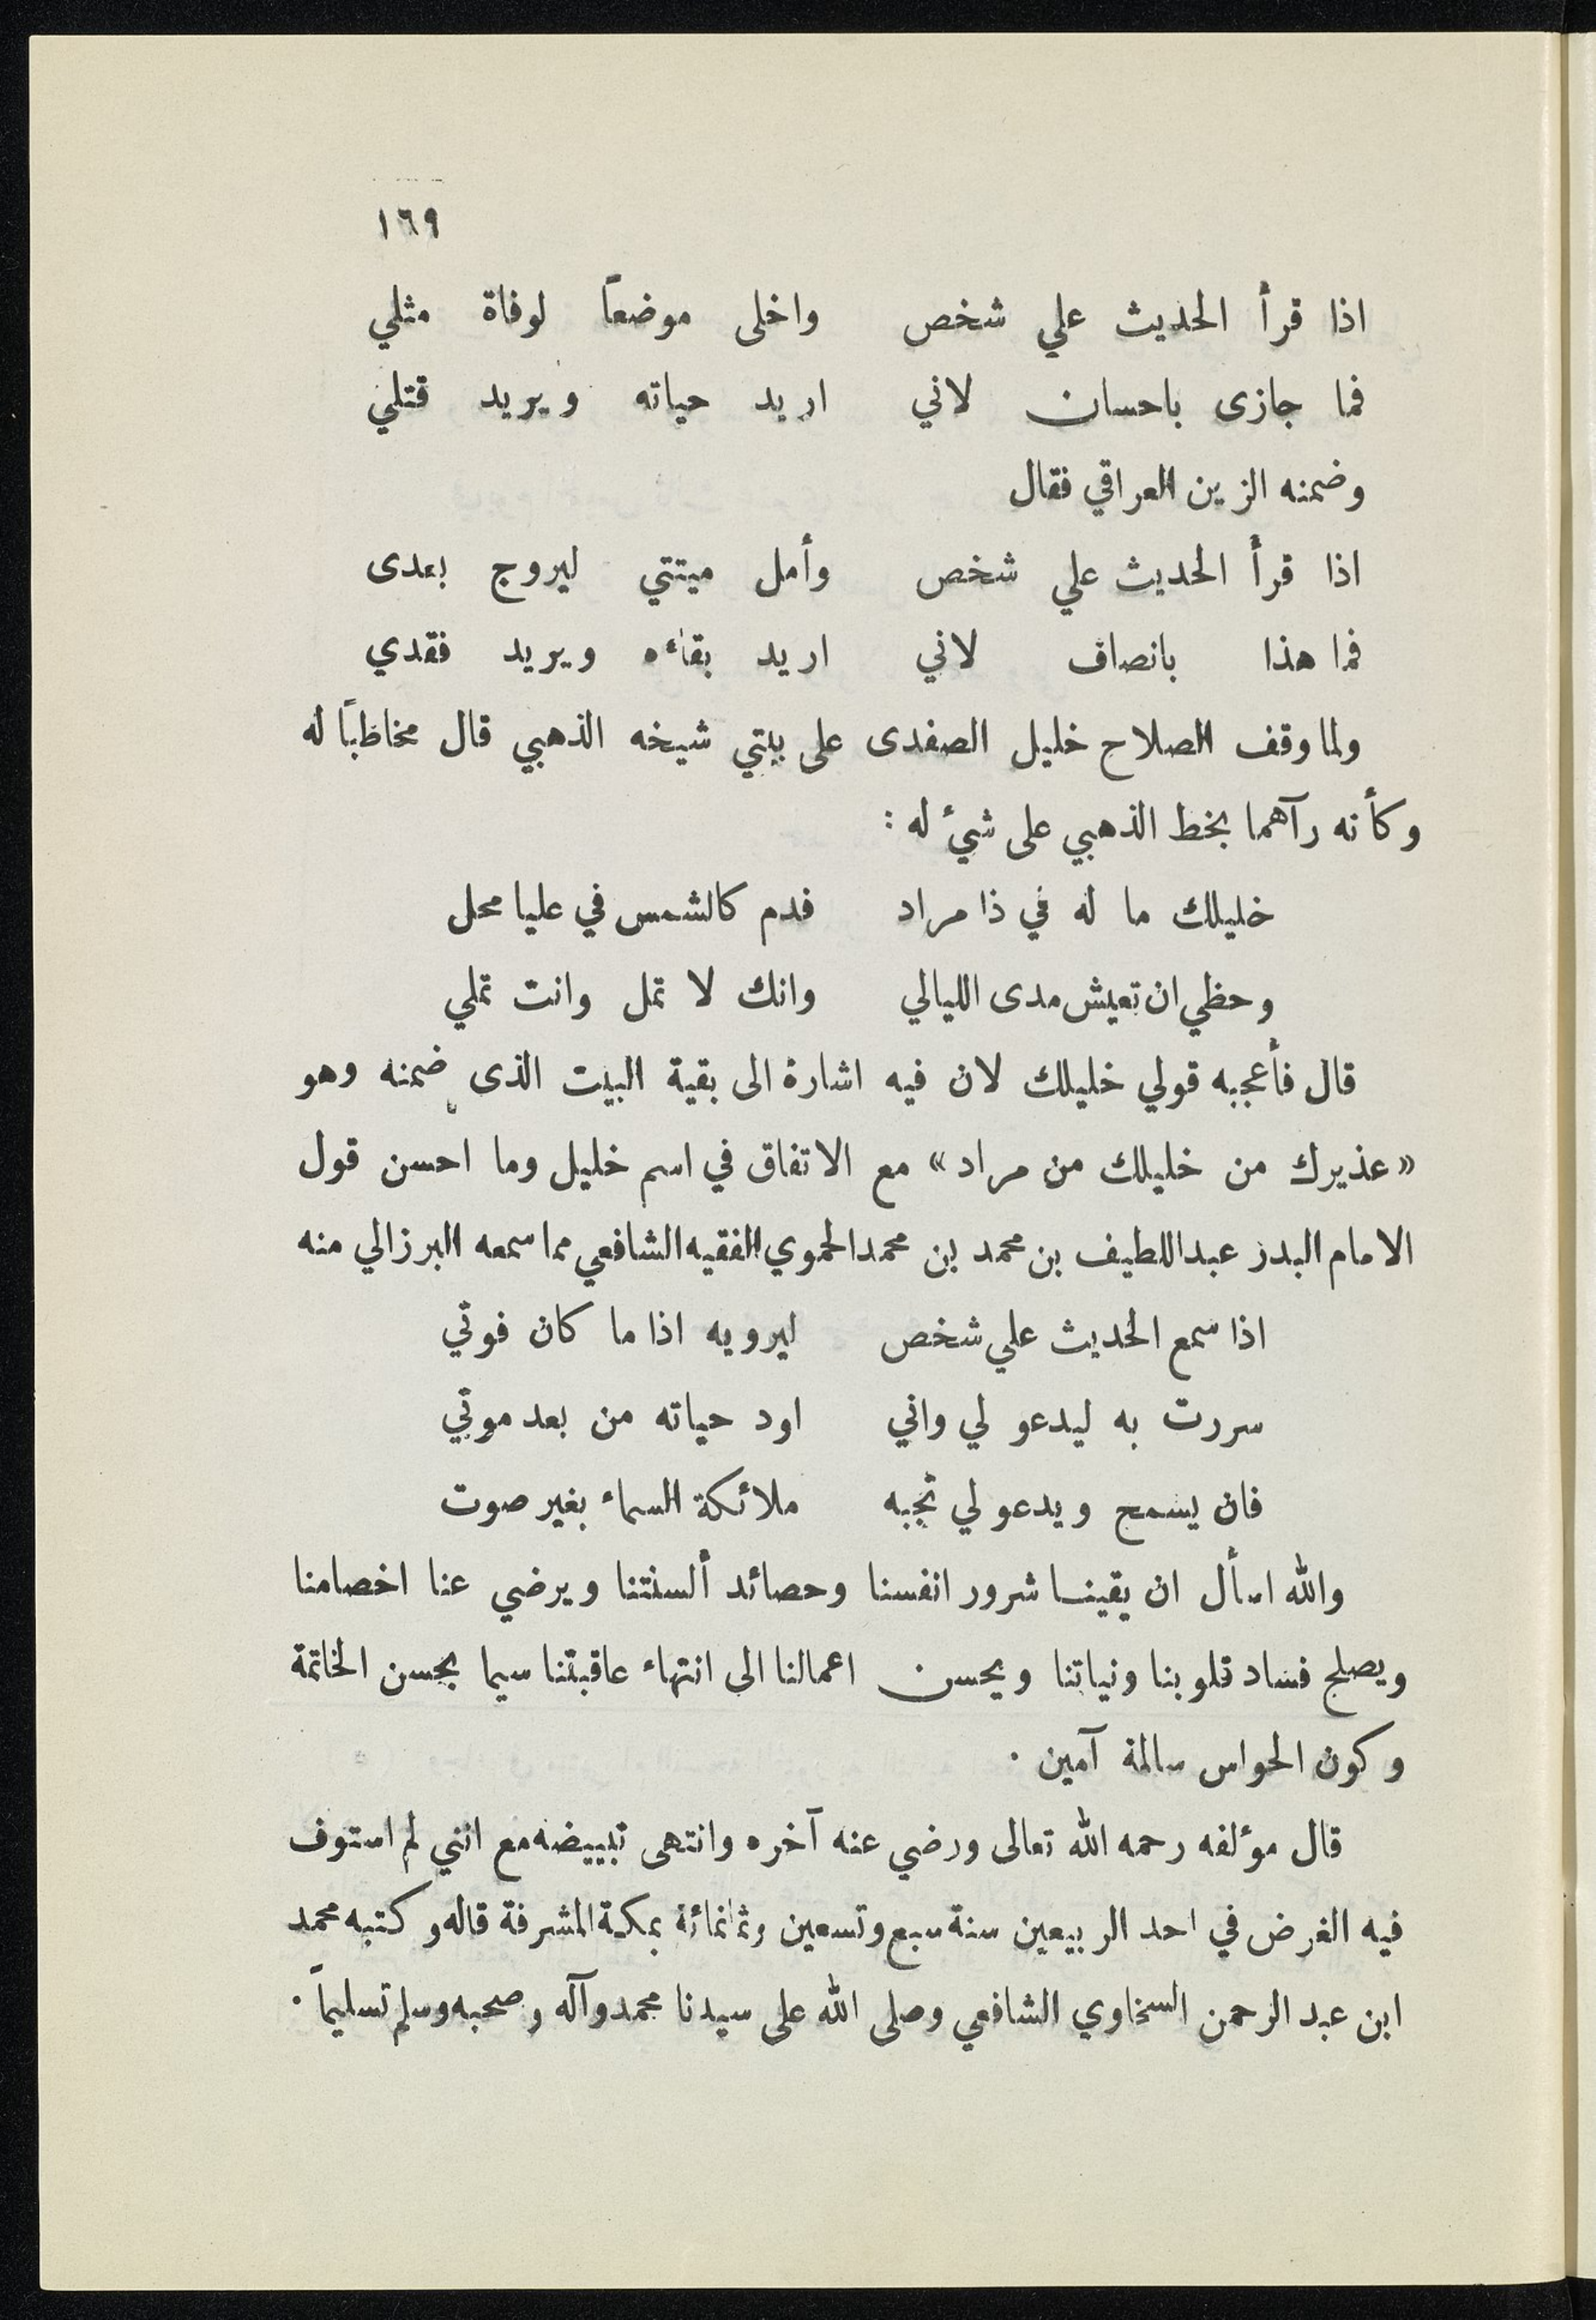 ١٦٩
اذا قرأ الحديث علي شخص واخلى موضعاً لوفاة مثلي
فما جازى باحسان لاني اريد حياته ويريد قتلي
وضمنه الزين العراقي فقال
اذا قرأ الحديث علي شخص وأمل ميتتي ليروج بعدى
فما هذا بانصاف لاني اريد بقاءه ويريد فقدي
ولما وقف الصلاح خليل الصفدى على بيتي شيخه الذهبي قال مخاطباً له
وكأنه رآهما بخط الذهبي على شيء له :
خليلك ما له في ذا مراد فدم كالشمس في عليا محل
وحظي ان تعيش مدى الليالي وانك لا تمل وانت تملي
قال فأعجبه قولي خليلك لان فيه اشارة الى بقية البيت الذى ضمنه وهو
«عذيرك من خليلك من مراد» مع الاتفاق في اسم خليل وما احسن قول
الامام البدر عبداللطيف بن محمد بن محمد الحموي الفقيه الشافعي مما سمعه البرزالي منه
اذا سمع الحديث علي شخص ليرويه اذا ما كان فوتي
سررت به ليدعو لي واني اود حياته من بعد موتي
فان يسمح ويدعو لي تجبه ملائكة السماء بغير صوت
والله اسأل ان يقينا شرور انفسنا وحصائد ألسنتنا ويرضي عنا اخصامنا
ويصلح فساد قلوبنا ونياتنا ويحسن اعمالنا الى انتهاء عاقبتنا سيما بحسن الخاتمة
وكون الحواس سالمة آمين .
قال مؤلفه رحمه الله تعالى ورضي عنه آخره وانتهى تبييضه مع انني لم استوف
فيه الغرض في احد الربيعين سنة سبع وتسعين وثمانمائة بمكة المشرفة قاله وكتبه محمد
ابن عبد الرحمن السخاوي الشافعي وصلى الله على سيدنا محمد وآله وصحبه وسلم تسليماً .